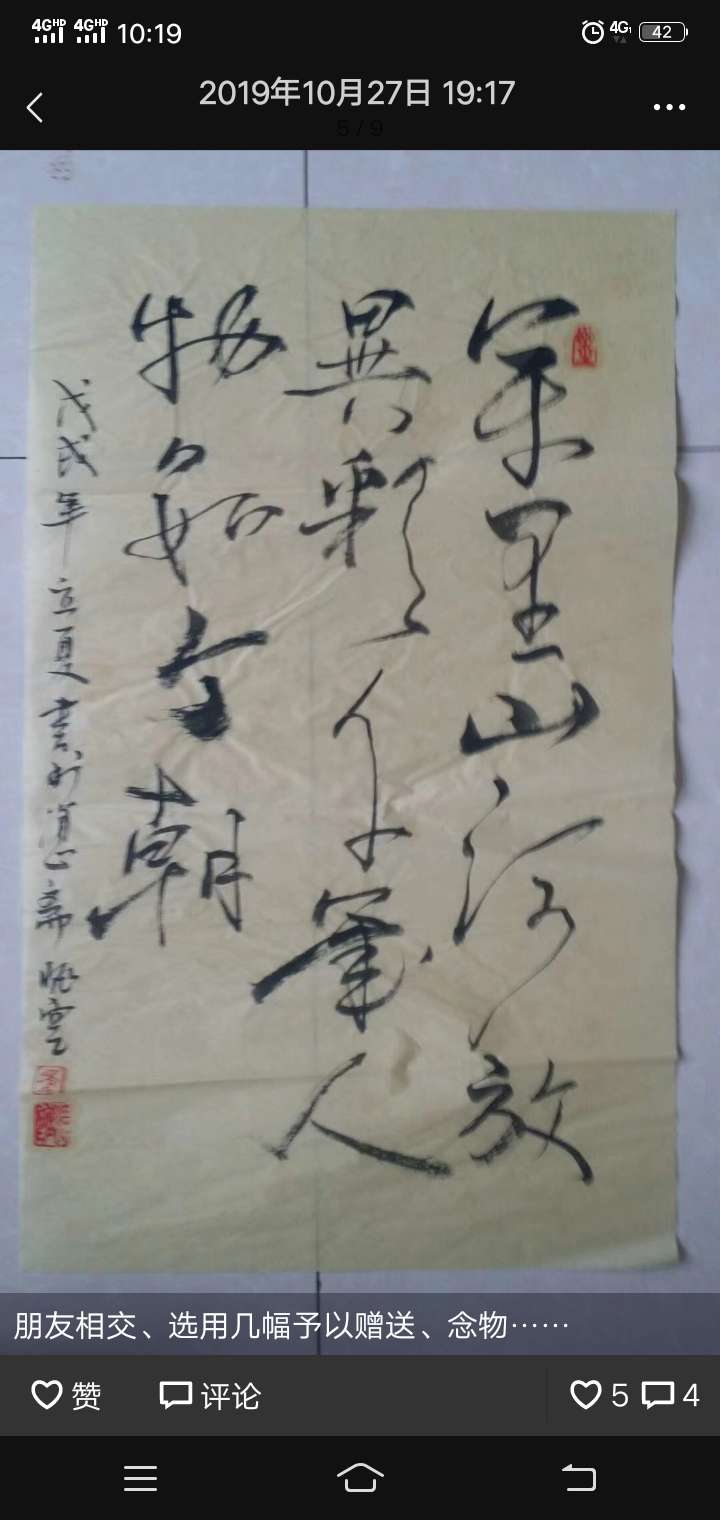 4GHD 4GHD 10:19 4G 42
2019年10月27日 19:17
5 / 9
里山河放
異彩 人
物如今朝
戊戌年立夏書於 斋
朋友相交、选用几幅予以赠送、念物……
赞 评论 5 4